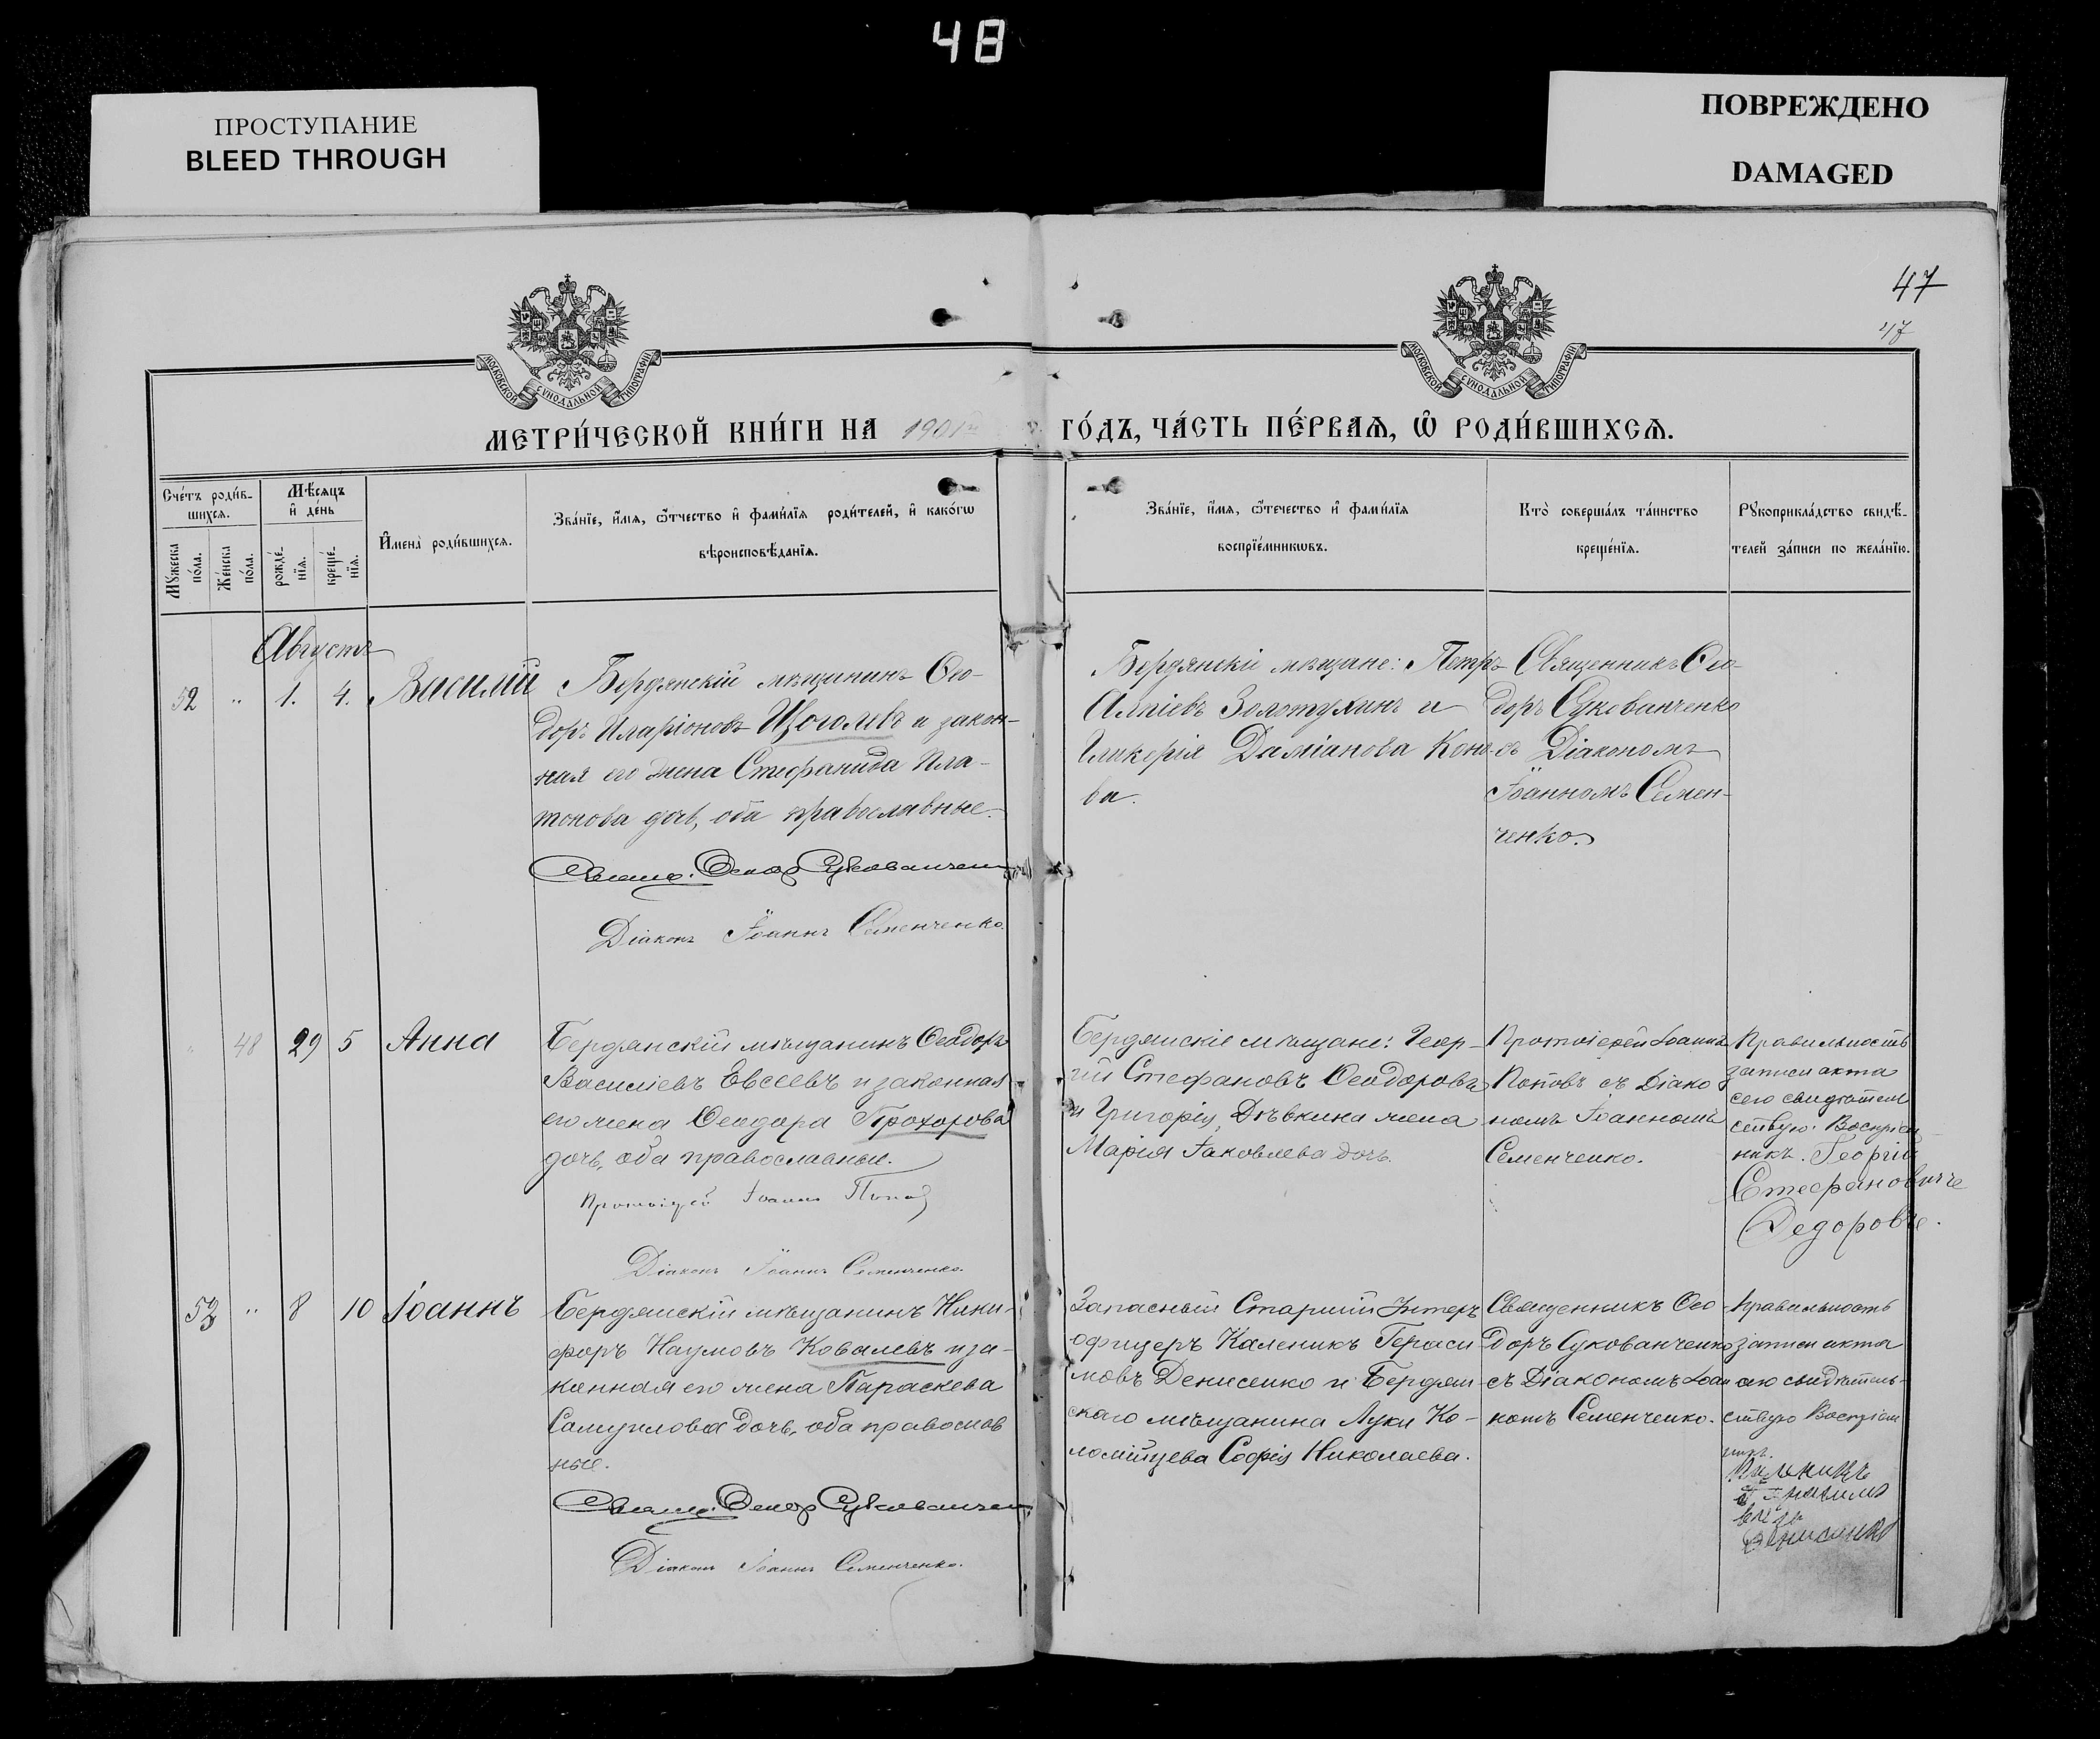 48
ПРОСТУПАНИЕ
BLEED THROUGH
ПОВРЕЖДЕНО
DAMAGED
47
47
МОСКОВСКОЙ СУНОДАЛЬНОЙ ТИПОГРАФІИ
МОСКОВСКОЙ СУНОДАЛЬНОЙ ТИПОГРАФІИ
МЕТРИ́ЧЕСКОЙ КНИ́ГИ НА 1901 ГО́ДЪ, ЧА́СТЬ ПЕ́РВАѦ, Ѡ҆ РОДИ́ВШИХСѦ.
Сче́тъ роди́в-
шихсѧ.
Мꙋ́жеска
по́ла.
Же́нска
по́ла.
Мѣ́сѧцъ
и҆ де́нь
рожде́-
нїѧ.
креще́-
нїѧ.
И҆мена̀ роди́вшихсѧ.
Зва́нїе, и҆́мѧ, ѻ҆́тчество и҆ фами́лїѧ роди́телей, и҆ како́гѡ
вѣроисповѣ́данїѧ.
Зва́нїе, и҆́мѧ, ѻ҆́течество и҆ фами́лїѧ
воспрїе́мникѡвъ.
Кто̀ соверша́лъ та́инство
креще́нїѧ.
Рꙋкоприкла́дство свидѣ́-
телей за́писи по жела́нїю.
Августъ
52 " 1. 4. Василій
Бердянскій мѣщанинъ Ѳео-
доръ Иларіоновъ Щоголевъ и закон-
ная его жена Стефанида Пла-
тонова дочь, оба православные.
Священ. Ѳеодор Сукованчен
Діаконъ Іоаннъ Семенченко.
Бердянскіе мѣщане: Петръ
Алпіевъ Золотухинъ и
Гликерія Даміанова Коно-
ва.
Священникъ Ѳео-
доръ Сукованченко
съ Діакономъ
Іоанномъ Семен-
ченко.
" 48 29 5 Анна
Бердянскій мѣщанинъ Ѳеодоръ
Василіевъ Евсеевъ и законная
его жена Ѳеодора Прохорова
дочь, оба православные.
Протоіерей Іоаннъ Попов
Діаконъ Іоаннъ Семенченко.
Бердянскіе мѣщане: Геор-
гій Стефановъ Ѳеодоровъ
и Григорія Дѣвкина жена
Марія Іаковлева дочь.
Протоіерей Іоаннъ
Поповъ съ Діако
номъ Іоанномъ
Семенченко.
Правильность
записи акта
сего свидѣтель
ствую: Воспріем
никъ. Георгій
Стефановиче
Федоровъ.
53 " 8 10 Іоаннъ
Бердянскій мѣщанинъ Ники-
форъ Наумовъ Ковалевъ и за-
конная его жена Параскева
Самуилова дочь, оба православ
ные.
Священ. Ѳеодор Сукованчен
Діаконъ Іоаннъ Семенченко.
Запасный Старшій Унтеръ
офицеръ Каленикъ Гераси-
мовъ Денисенко и Бердян-
скаго мѣщанина Луки Ко-
ломійцева Софія Николаева.
Священникъ Ѳео-
доръ Сукованченко
съ Діакономъ Іоан
номъ Семенченко.
Правильность
записи акта
сего свидѣтель-
ствую Воспріем
никъ.
Каленикъ
Денисенко